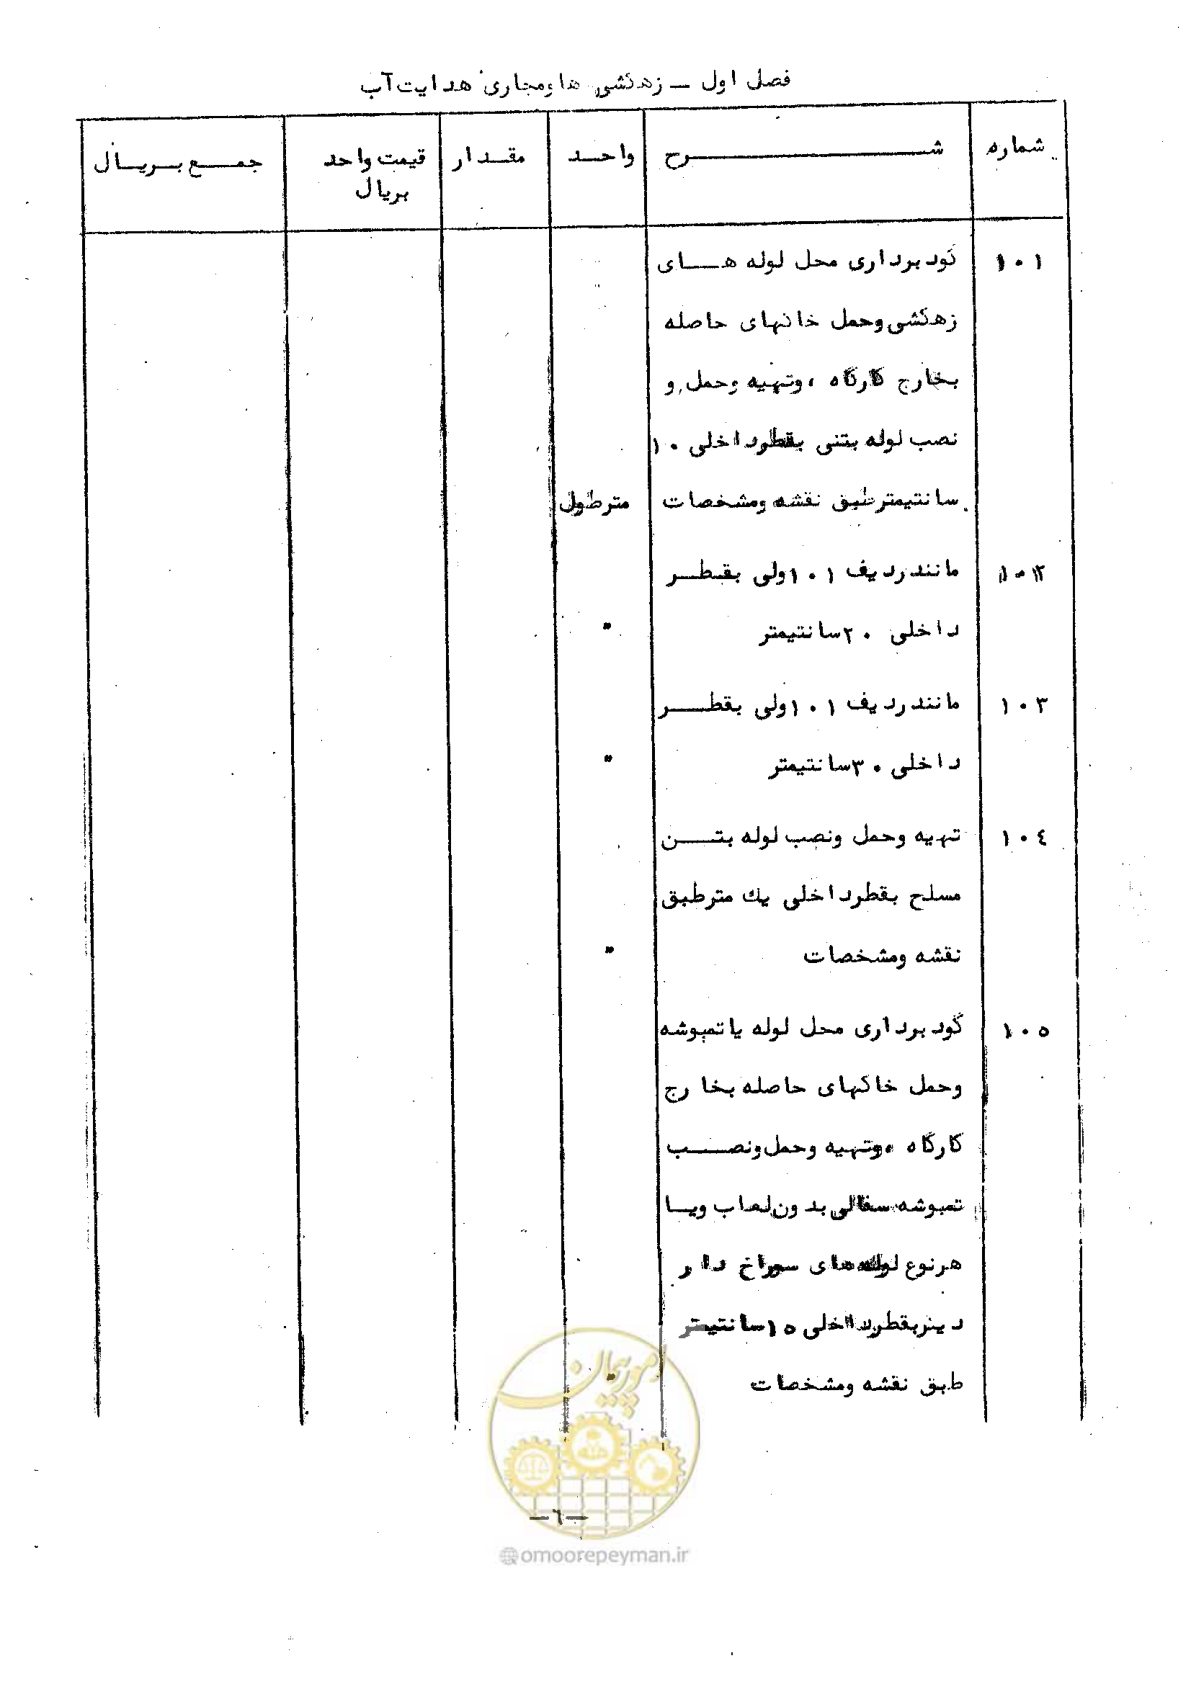 فصل اول ــ زهکشی ها و مجاری هدایت آب
شماره شــــرح واحد مقدار قیمت واحد بریال جمع بریال
۱۰۱ گود برداری محل لوله های
زهکشی وحمل خاکهای حاصله
بخارج کارگاه ، وتهیه وحمل و
نصب لوله بتنی بقطر داخلی ۱۰
سانتیمتر طبق نقشه ومشخصات مترطول
۱۰۲ مانند ردیف ۱۰۱ ولی بقطر
داخلی ۲۰ سانتیمتر "
۱۰۳ مانند ردیف ۱۰۱ ولی بقطر
داخلی ۳۰ سانتیمتر "
۱۰٤ تهیه وحمل ونصب لوله بتن
مسلح بقطر داخلی یك متر طبق
نقشه ومشخصات "
۱۰۵ گود برداری محل لوله یا تمبوشه
وحمل خاکهای حاصله بخارج
کارگاه ، وتهیه وحمل ونصب
تمبوشه سفالی بدون لعاب ویا
هرنوع لوله های سوراخ دار
دیگر بقطر داخلی ۱۵ سانتیمتر
طبق نقشه ومشخصات "
امور پیمان
—٦—
@omoorepeyman.ir